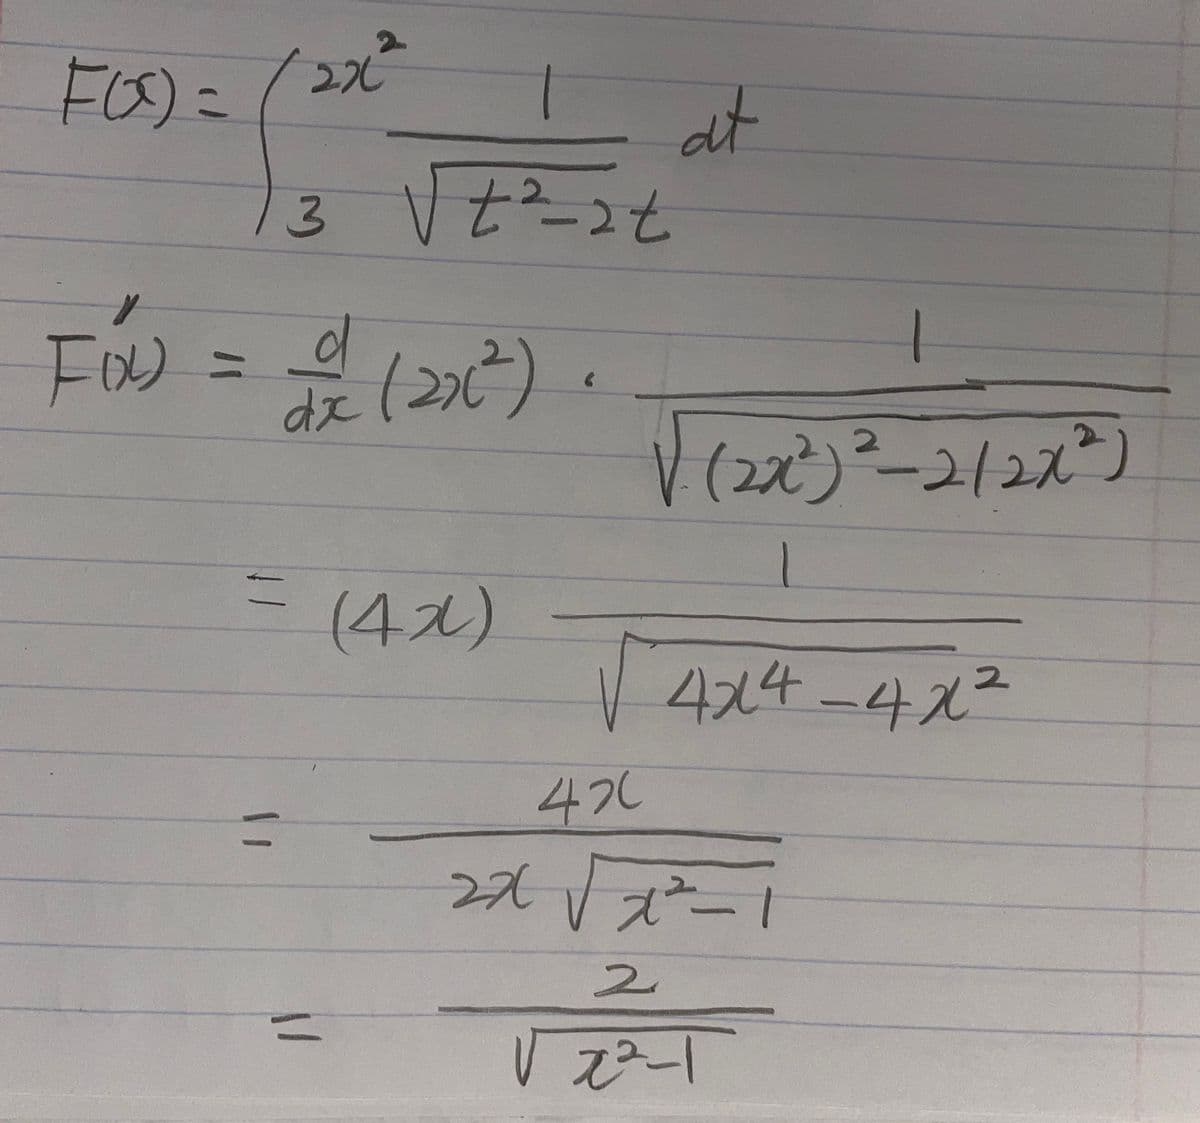 F(x) = ∫_3^{2x^2} \frac{1}{\sqrt{t^2-2t}} dt
F'(x) = \frac{d}{dx} (2x^2) · \frac{1}{\sqrt{(2x^2)^2-2(2x^2)}}
= (4x) \frac{1}{\sqrt{4x^4-4x^2}}
= \frac{4x}{2x\sqrt{x^2-1}}
= \frac{2}{\sqrt{x^2-1}}